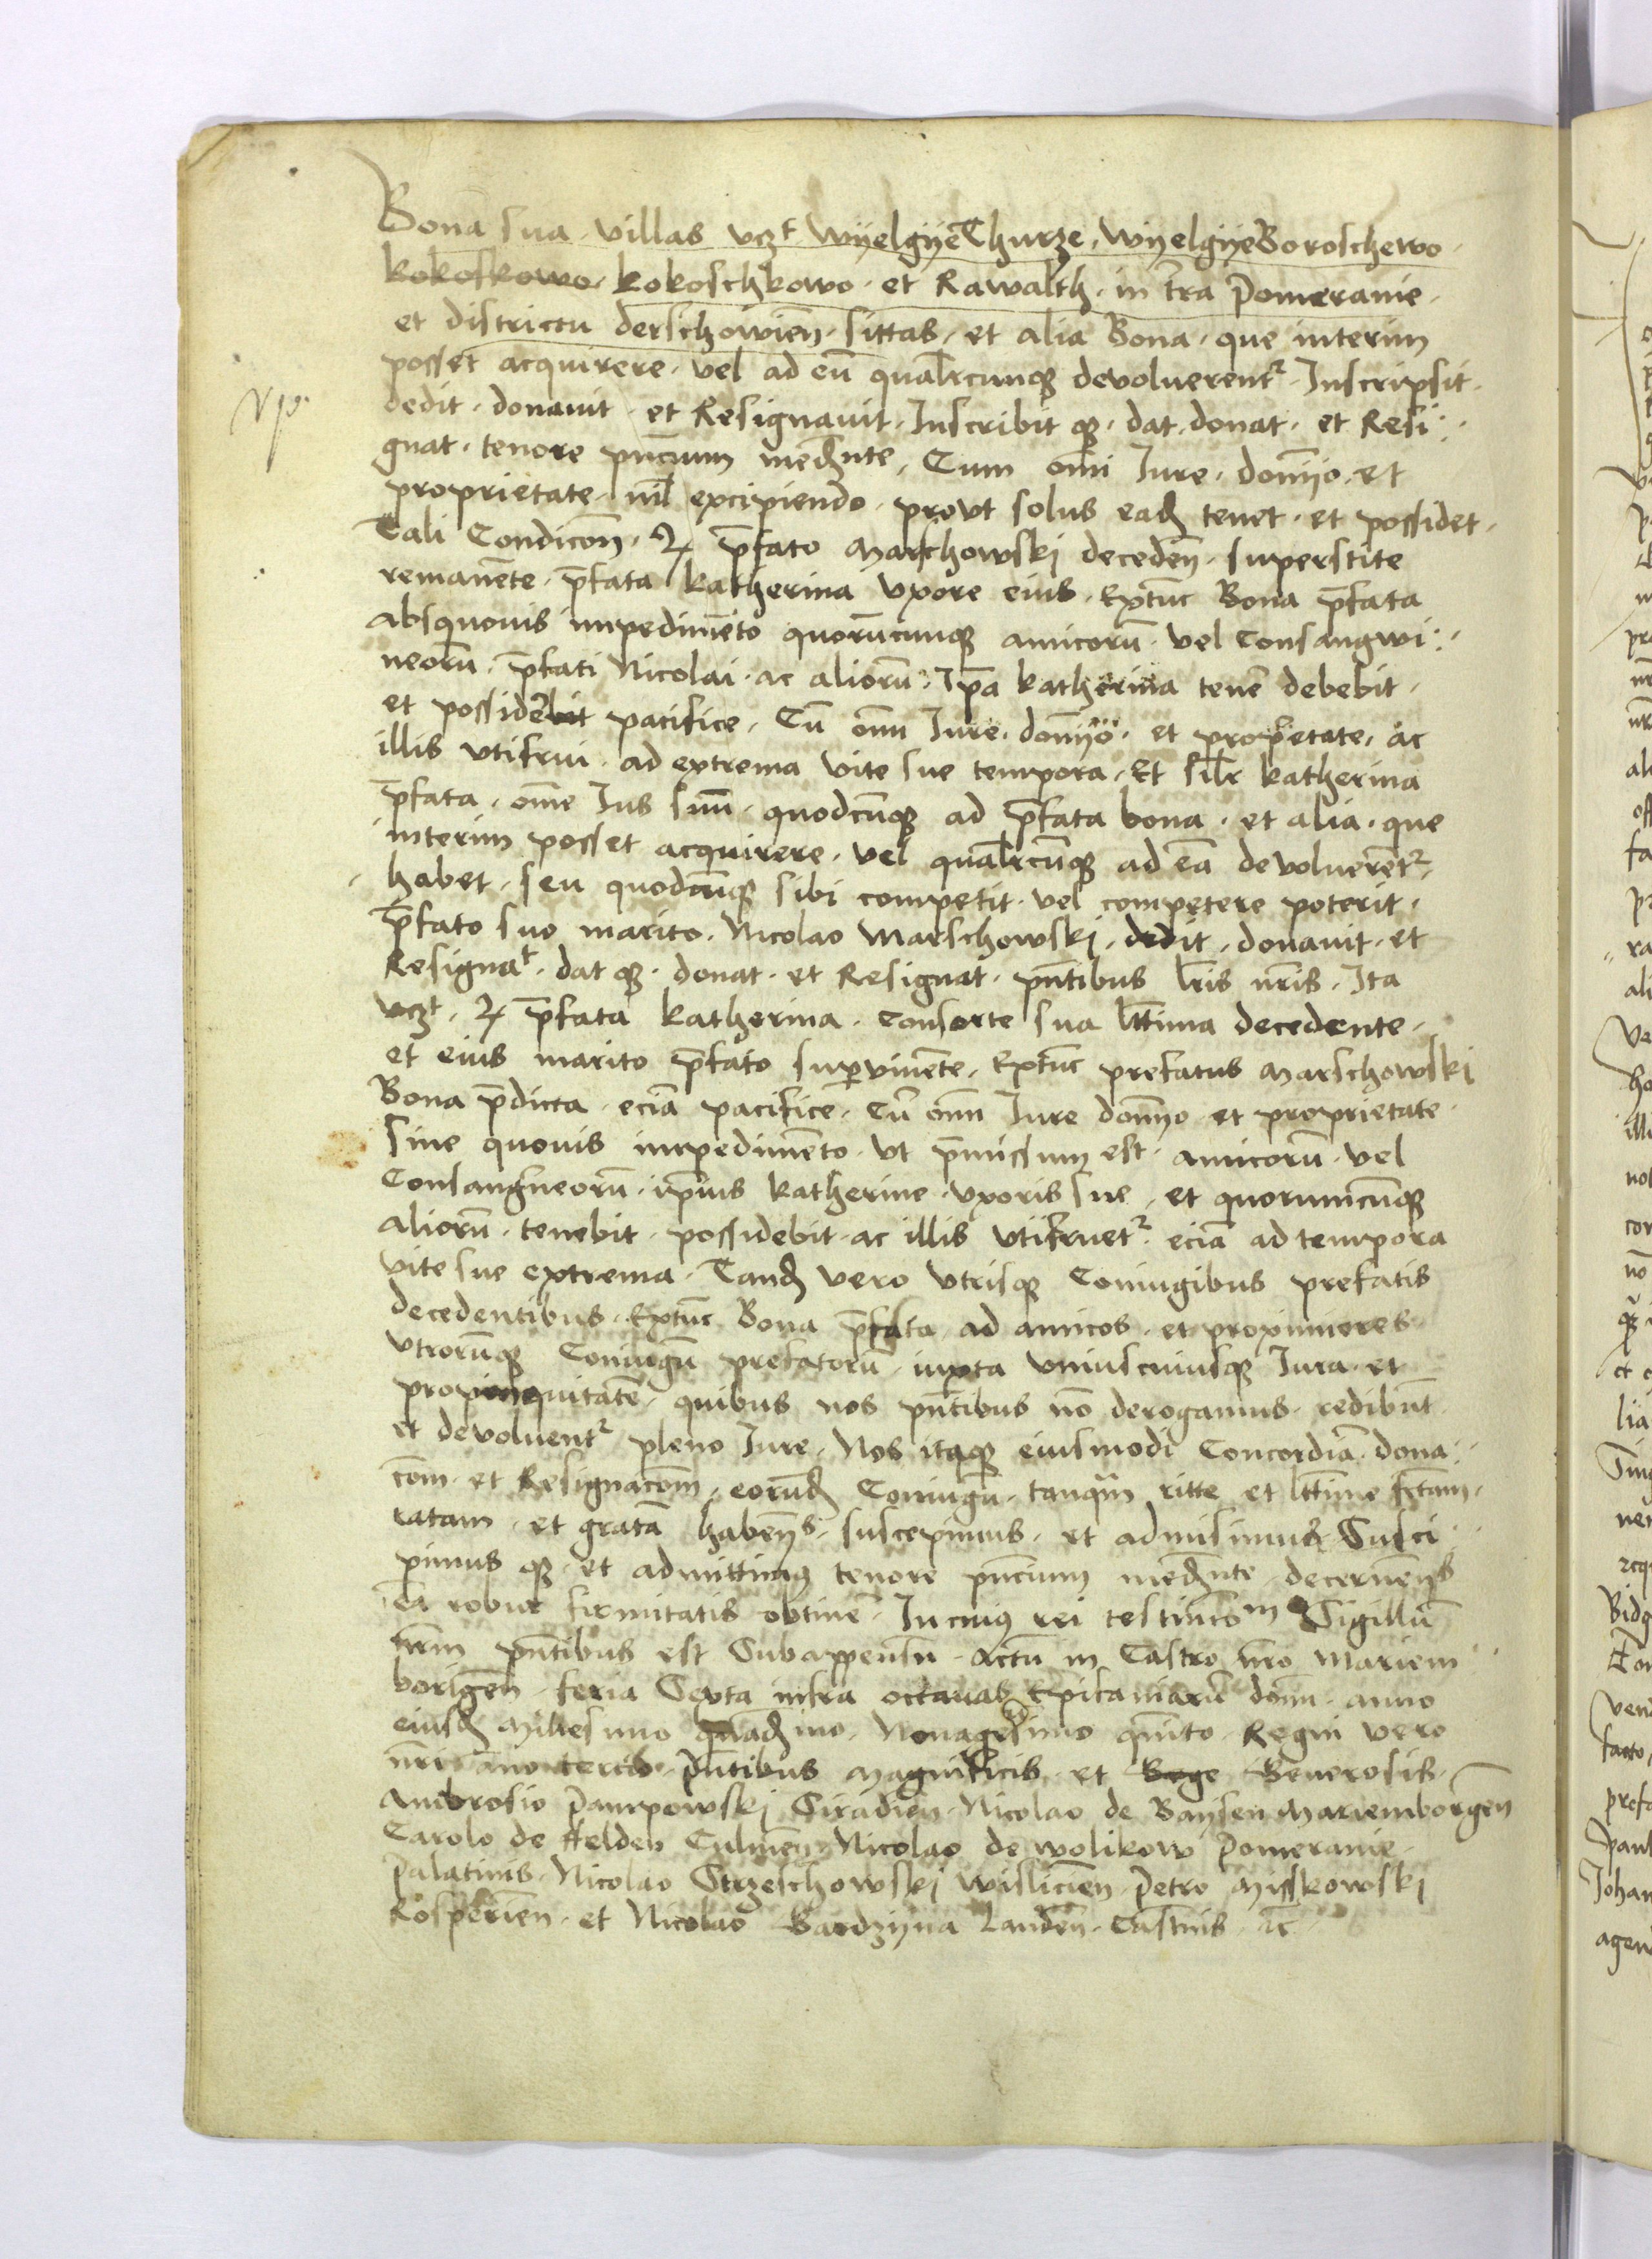 Bona sua villas vczt Wijelgije Thurze, Wijelgije Boroschewo
kokoskowo, kokoschkowo et Rawalth in tra Pomeranie
et districtu derschowien sittas et alia Bona que interim
posset acquirere vel ad eu qualrcunq devoluerentr Inscripsit
dedit donauit et Resignauit Inscribit q dat donat et Resi
gnat tenore pncium medante, Cum omi Jure dominijo et
proprietate nil excipiendo provt solus ead tenet et possidet
Tali Condicon q pfato Marschowski deceden superstite
remanete pfata katherina vxore eius Extunc Bona pfata
absquouis impedimeto quorucunq amicoru vel Consangwi
neoru pfati Nicolai ac alioru Ipa katherina tene debebit
et possidebit pacifice, Cu omi Jure dominijo et proprietate, ac
illis vtifrui ad extrema vite sue tempora, Et silr katherina
pfata ome Jus suu quodcuq ad pfata bona et alia que
interim posset acquirere vel qualrcuq ad ea devoluerentr
habet seu quodcuq sibi competit vel competere poterit
pfato suo marito Nicolao Marschowski dedit donauit et
Resignat dat q donat et Resignat pntibus lris nris Ita
vczt q pfata katherina Consorte sua lttima decedente
et eius marito pfato supervivente, Extunc prefatus Marschowski
Bona pdicta ecia pacifice Cu omi Jure dominijo et proprietate
sine quouis impedimeto vt pmissum est amicoru vel
Consangneoru ipius katherine vxoris sue et quorumcuq
alioru tenebit possidebit ac illis vtifruetr ecia ad tempora
vite sue extrema Tand vero vtrisq Coniugibus prefatis
decedentibus Extunc Bona pfata ad amicos et proximiores
vtroruq Coniugu prefatoru iuxta vniuscuiusq Jura et
propinquitate quibus nos pntibus no derogamus redibut
et devoluentr pleno Jure Nos itaq eiusmodi Concordia dona
com et Resignacom eorud Coniugu tanqm ritte et lttime fctam
ratam et grata habens suscepimus et admisimus Susci
pimus q et admittimus tenore pncium medante decernens
ea robur firmitatis obtine In cuius rei testimom Sigillu
nrm pntibus est Subappensu Actu in Castro nro Mariem
borigen feria Sexta infra octauas Epifaniaru domi anno
eiusd Millesimo quadino Nonagesimo quinto Regni vero
nri anno tercio pntibus Magnificis et Gege Generosis
Ambrosio Pampowski Siradien Nicolao de Baysen Mariemborgen
Carolo de Felden Culmen Nicolao de wolikow Pomeranie
Palatinis Nicolao Strzeschowski wislicien Petro Misskowski
Rosperien et Nicolao Bardzijna Landen Castnis ac